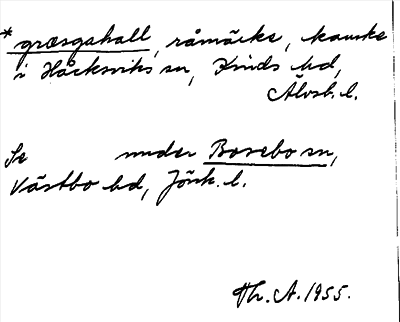 * græsgahall, råmärke, kanske
i Håcksviks sn, Kinds hd,
Älvsb. l.
Se under Bosebo sn,
Västbo hd, Jönk. l.
Th. A. 1955.